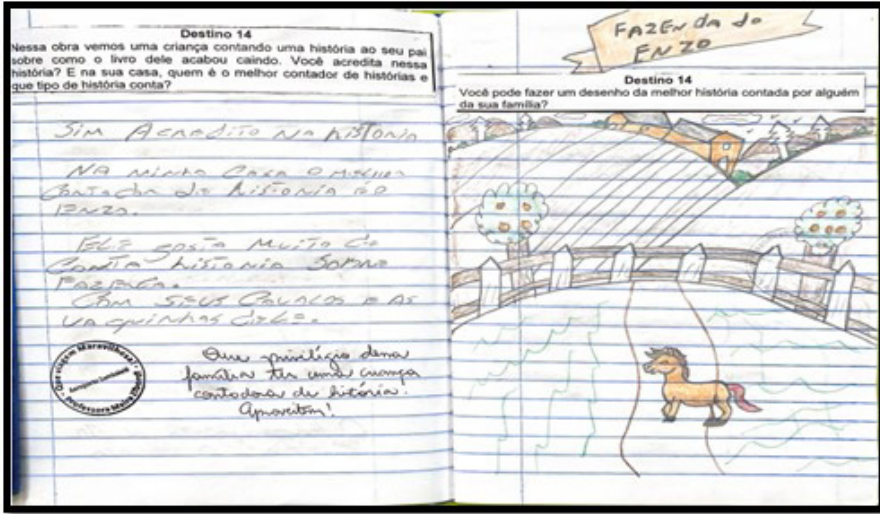 Destino 14
Nessa obra vemos uma criança contando uma história ao seu pai
sobre como o livro dele acabou caindo. Você acredita nessa
história? E na sua casa, quem é o melhor contador de histórias e
que tipo de história conta?
Sim Acredito na historia
Na minha casa o melhor
contador de historia é o
Enzo.
Ele gosta muito de
conta historia sobre
fazenda.
Com seus cavalos e as
vaquinhas dele.
Que viagem Maravilhosa!
Professora
Que privilégio dessa
família ter uma criança
contadora de história.
Aproveitem!
Fazenda do
Enzo
Destino 14
Você pode fazer um desenho da melhor história contada por alguém
da sua família?